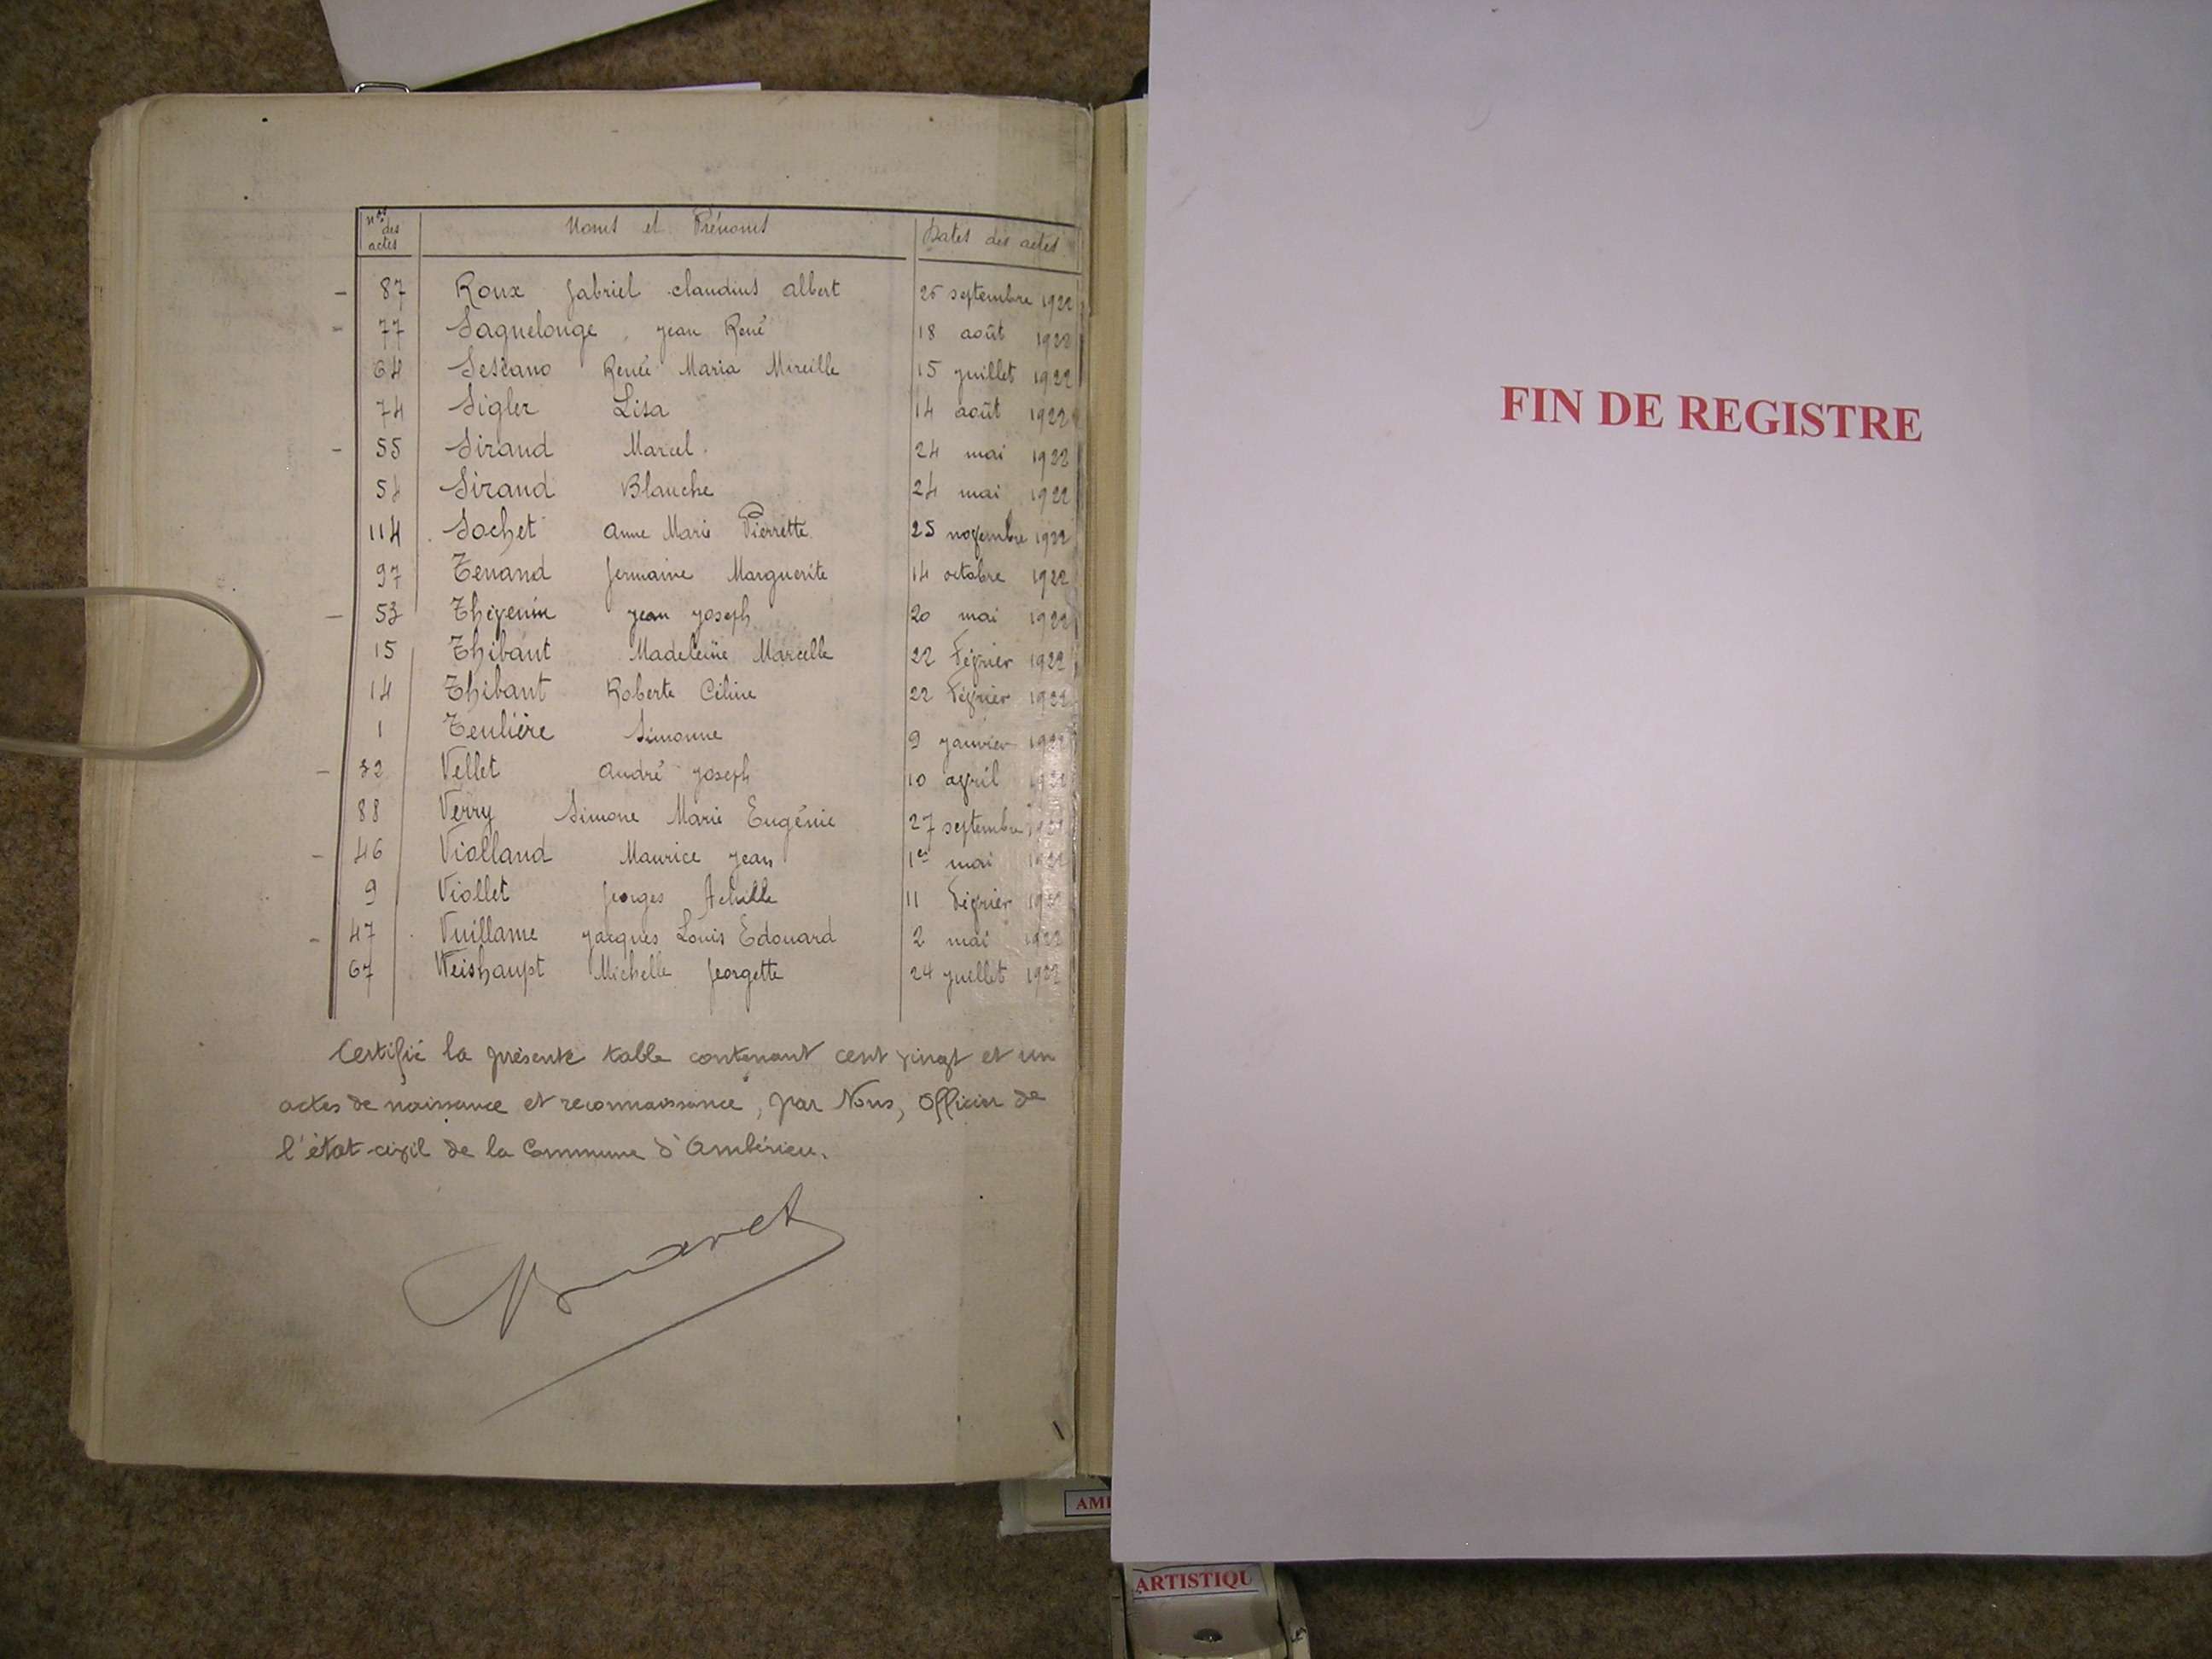 nos des actes Noms et Prénoms Dates des actes
- 87 Roux Gabriel Claudius Albert 25 septembre 1922
- 77 Saquelonge, Jean René 18 août 1922
64 Renée Maria Mireille 15 juillet 1922
74 Sigler Lisa 14 août 1922
- 55 Sirand Marcel. 24 mai 1922
54 Sirand Blanche 24 mai 1922
114 Sochet Anne Marie Pierrette 25 novembre 1922
97 Tenand Germaine Marguerite 14 octobre 1922
- 53 Thévenin Jean Joseph 20 mai 1922
15 Thibaut Madeleine Marcelle 22 Février 1922
14 Thibaut Roberte Céline 22 Février 1922
1 Teulière Simonne 9 janvier 1922
- 32 Vellet André Joseph 10 avril 1922
88 Verry Simone Marie Eugénie 27 septembre 1922
- 46 Violland Maurice Jean 1er mai 1922
9 Viollet Georges Achille 11 Février 1922
- 47 Vuillame Jacques Louis Edouard 2 mai 1922
67 Weishaupt Michelle Georgette 24 juillet 1922
Certifié la présente table contenant cent vingt et un
actes de naissance et reconnaissance, par Nous, Officier de
l'état-civil de la Commune d'Ambérieu.
FIN DE REGISTRE
AM
ARTISTIQU